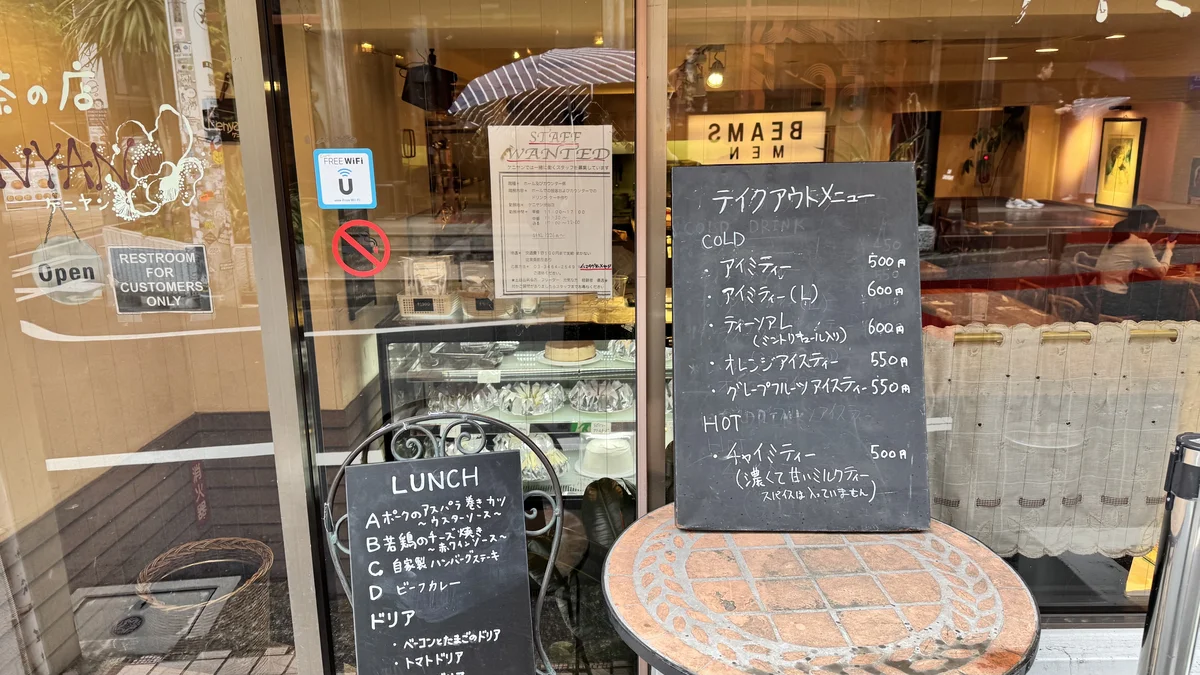 の店
NYAN
ケニヤン
Open
RESTROOM
FOR
CUSTOMERS
ONLY
FREE WiFi
U
STAFF
WANTED
BEAMS
MEN
テイクアウトメニュー
COLD
・アイミティー 500円
・アイミティー(L) 600円
・ティーソアL 600円
(ミントリキュール入り)
・オレンジアイスティー 550円
・グレープフルーツアイスティー 550円
HOT
・チャイミティー 500円
(濃くて甘いミルクティー
スパイスは入っていません)
LUNCH
Aポークのアスパラ巻きカツ
~ウスターソース~
B若鶏のチーズ焼き
~赤ワインソース~
C 自家製ハンバーグステーキ
D ビーフカレー
ドリア
・ベーコンとたまごのドリア
・トマトドリア